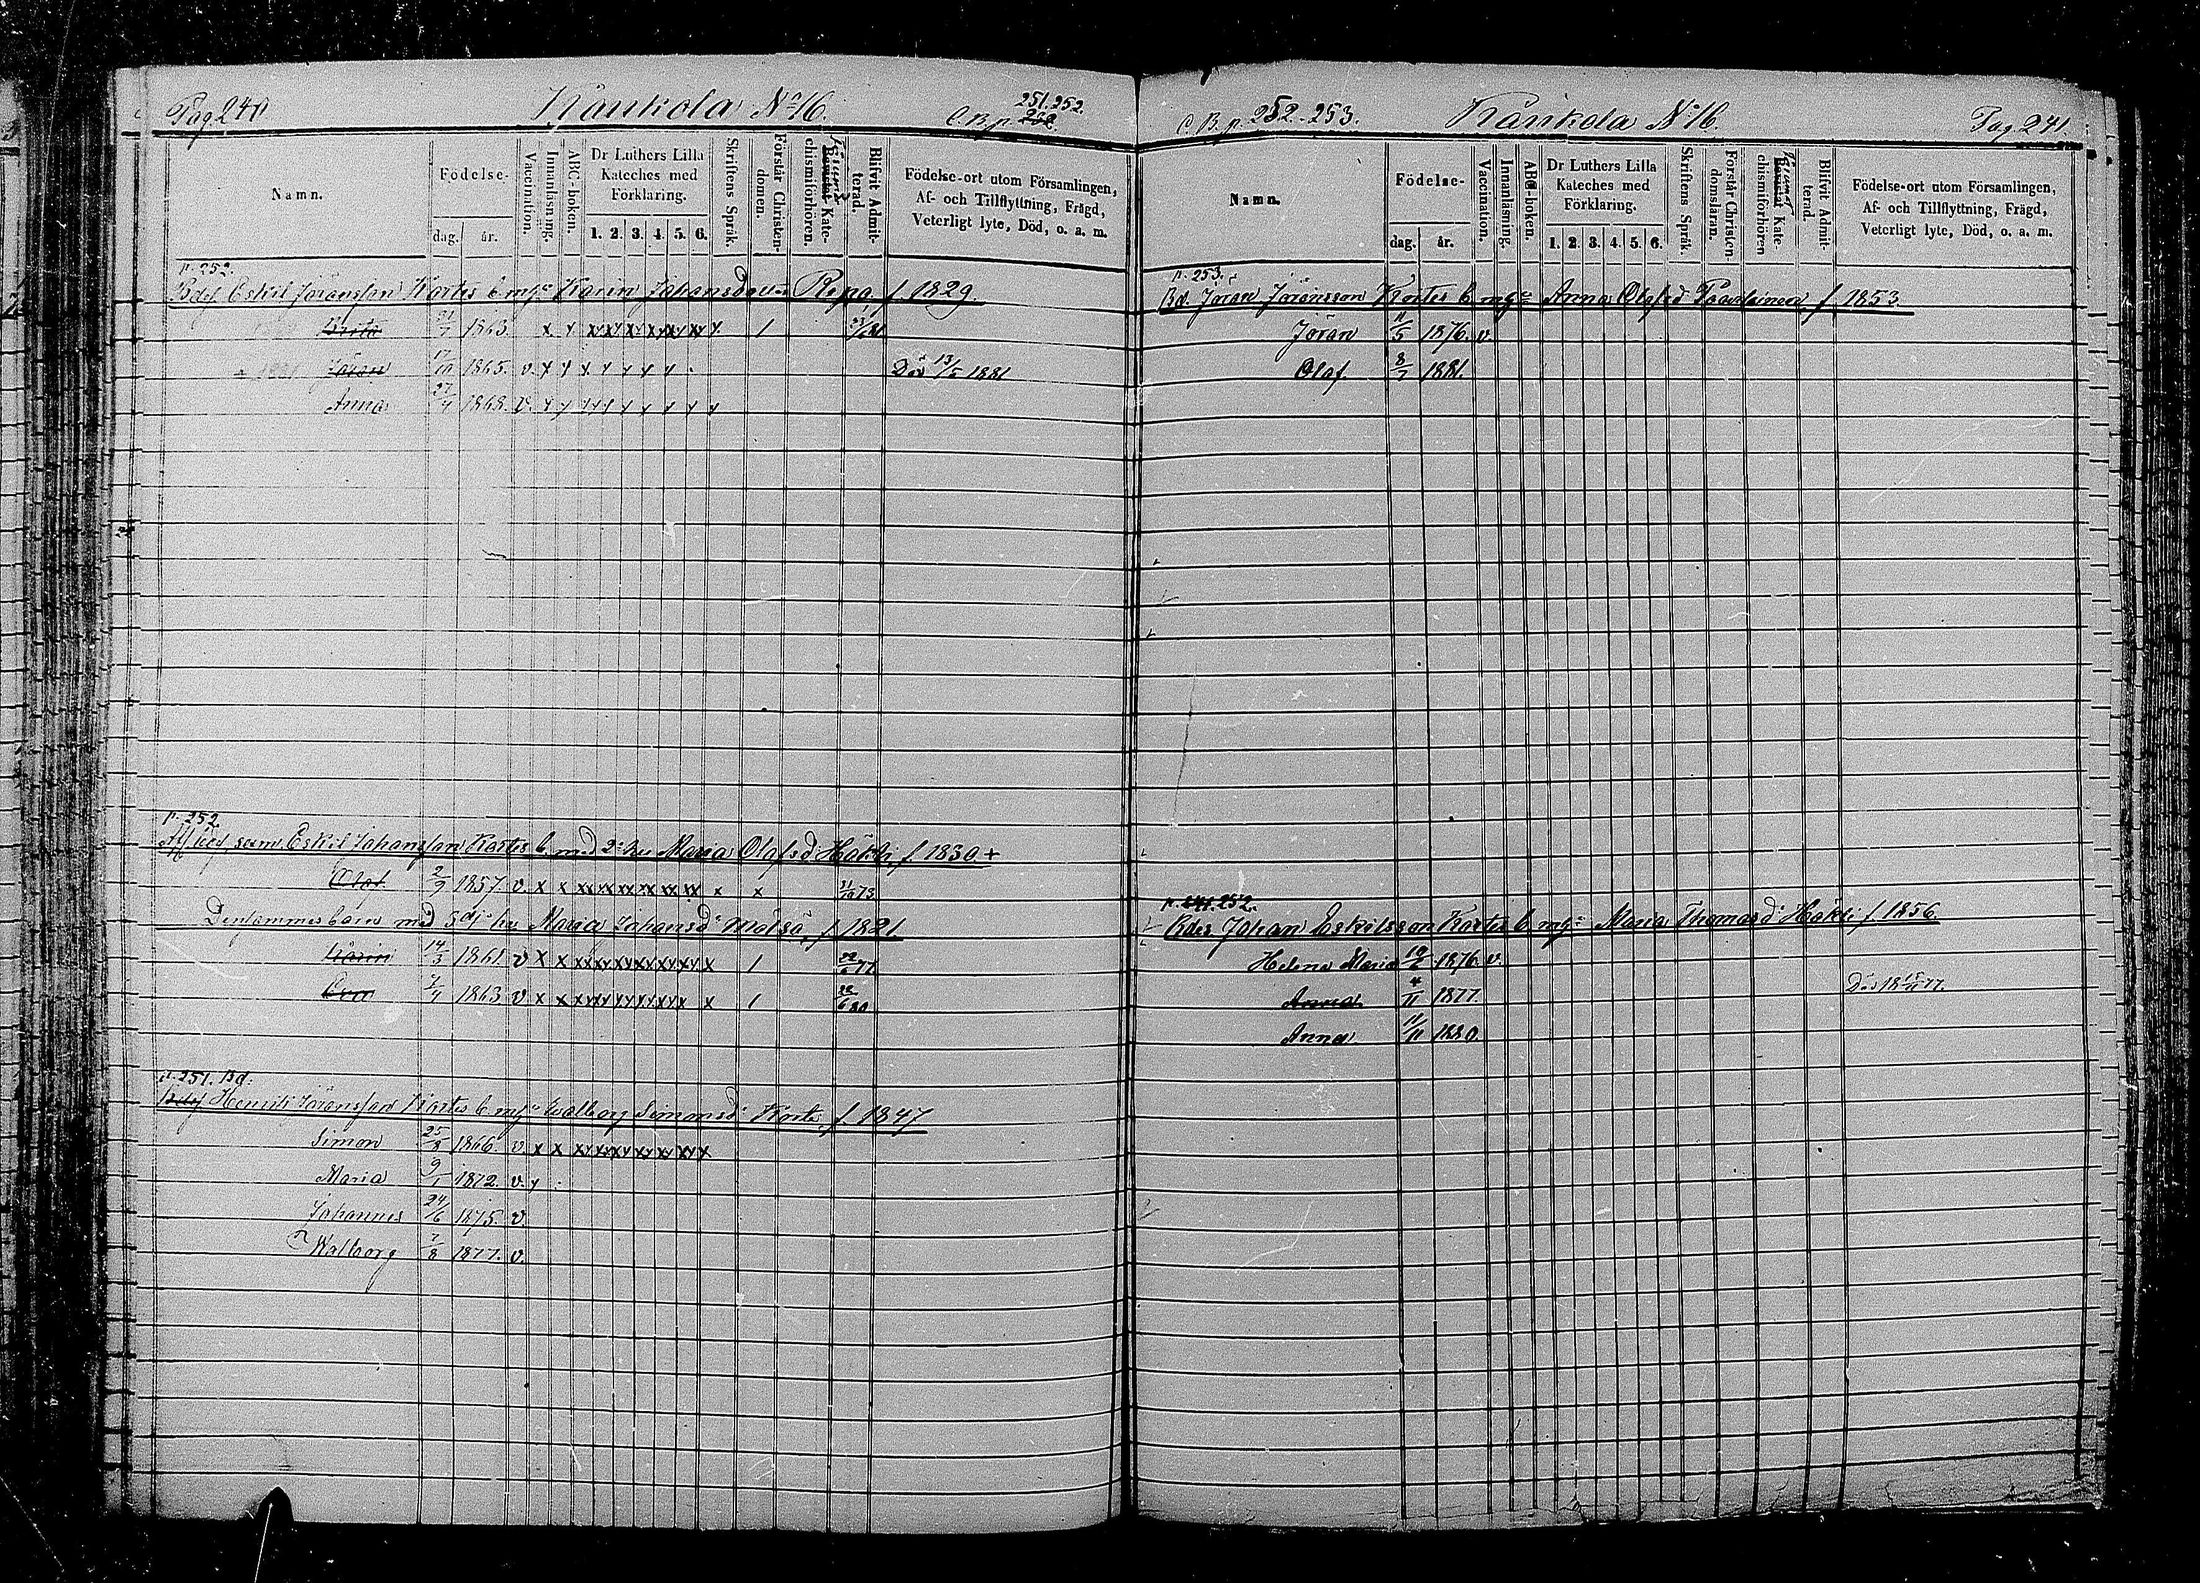 Pag. 240 Känkola No 16. C.B.p. 251. 252.
Namn. Födelse- dag. år. Vaccination. Innanläsning. ABC-boken. Dr Luthers Lilla Kateches med Förklaring. 1. 2. 3. 4. 5. 6. Skriftens Språk. Förstår Christendomen. Katechismiförhören. Blifvit Admitterad. Födelse-ort utom Församlingen, Af- och Tillflyttning, Frägd, Veterligt lyte, Död, o. a. m.
p. 252.
Eskil Jöransson Kortes b. mh: Karin Johansdotter Repo f. 1829.
Brita 1863. x y 1
Jöran 17/10 1865. v. Död 13/5 1881
Anna 27/4 1868. v.
p. 252.
Eskil Johansson Kortes b. med 2: hu Maria Olofsd Häkli f. 1830 +
Olof 2/9 1857 v. x x
Densammes barn med hu Maria Johansd: f. 1821
Karin 14/3 1861 v x x 1
Eva 1863 v x x 1
p. 251. Bd:
Henrik Jöransson Kortes b. mh: Walborg Simonsd: Kortes f. 1847
Simon 25/8 1866. v. x x
Maria 9/1 1872. v. y
Johannes 24/6 1875. v.
Walborg 7/8 1877. v.
C.B.p. 252-253. Känkola No 16. Pag. 241
Namn. Födelse- dag. år. Vaccination. Innanläsning. ABC-boken. Dr Luthers Lilla Kateches med Förklaring. 1. 2. 3. 4. 5. 6. Skriftens Språk. Förstår Christendomsläran. Katechismiförhören Blifvit Admitterad. Födelse-ort utom Församlingen, Af- och Tillflyttning, Frägd, Veterligt lyte, Död, o. a. m.
p. 253.
Bd. Jöran Jöransson Kortes b. mh: Anna Olofsd f. 1853
Jöran 11/5 1876. v.
Olof 8/7 1881.
252.
Johan Eskilsson Kortes b. mh: Maria Thomasd: Häkli f. 1856.
Helena Maria 1876 v.
Anna 4/11 1877.
Anna 11/11 1880.